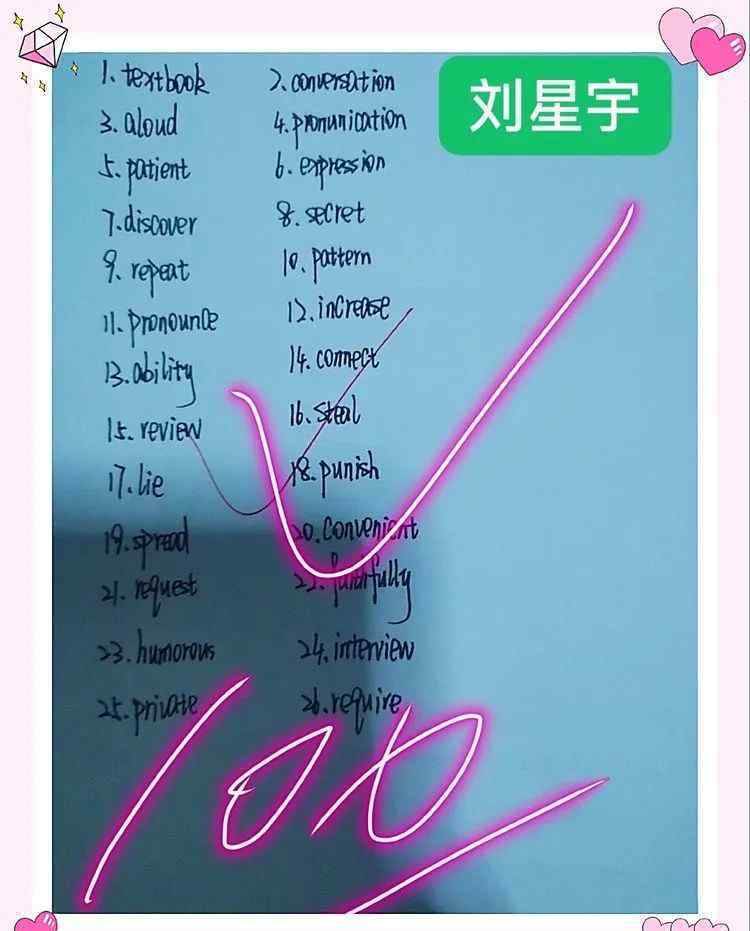 刘星宇
1. textbook 2. conversation
3. aloud 4. pronunication
5. patient 6. expression
7. discover 8. secret
9. repeat 10. pattern
11. pronounce 12. increase
13. ability 14. connect
15. review 16. steal
17. lie 18. punish
19. spread 20. convenient
21. request 22. faithfully
23. humorous 24. interview
25. private 26. require
100